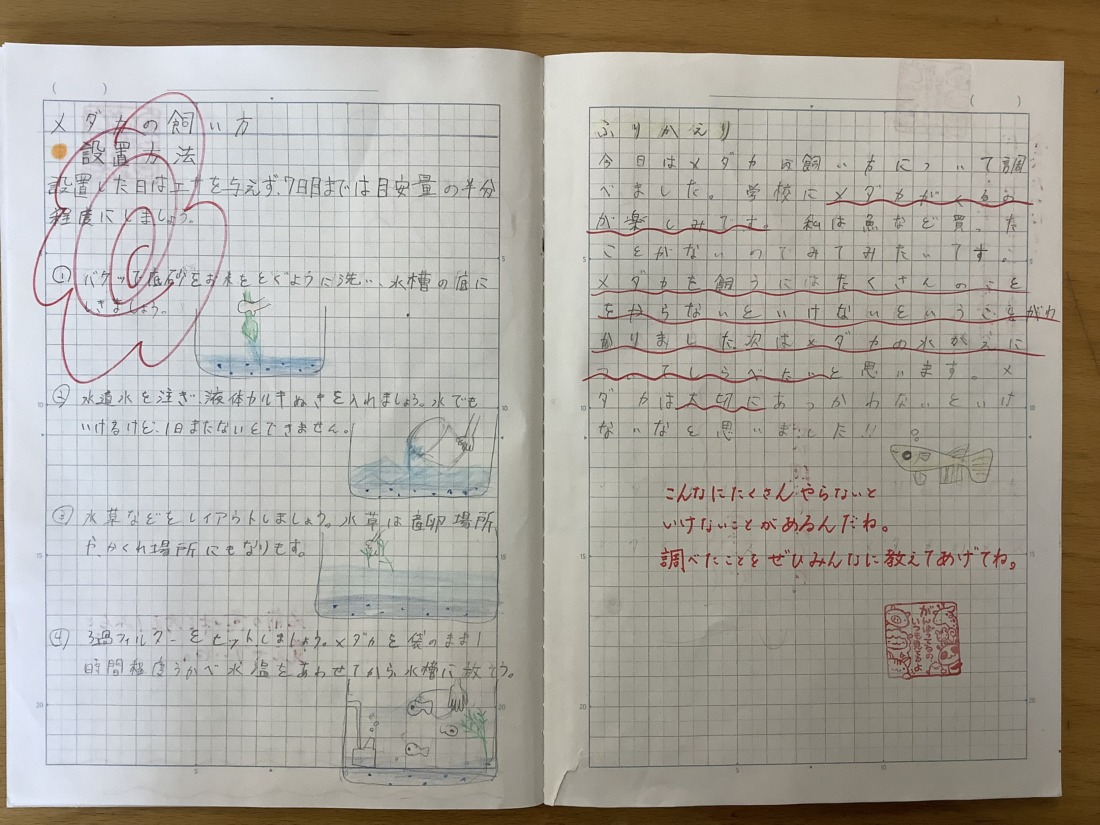 メダカの飼い方
設置方法
設置した日はエサを与えず、7日目までは目安量の半分
程度にしましょう。
① バケツで底砂をお米をとぐように洗い、水槽の底に
しきましょう。
② 水道水を注ぎ、液体カルキぬきを入れましょう。水でも
いけるけど、1日またないとできません。
③ 水草などをレイアウトしましょう。水草は産卵場所
や、かくれ場所にもなります。
④ ろ過フィルターをセットしましょう。メダカを袋のまま1
時間程度うかべ水温をあわせてから水槽に放そう。
ふりかえり
今日はメダカの飼い方について調
べました。学校にメダカがくるの
が楽しみです。私は魚など買った
ことがないのでみてみたいです。
メダカを飼うにはたくさんのこと
をやらないといけないということがわ
かりました次はメダカの水がえに
ついてしらべたいと思います。メ
ダカは大切にあつかわないといけ
ないなと思いました!!
こんなにたくさんやらないと
いけないことがあるんだね。
調べたことをぜひみんなに教えてあげてね。
がんばってるの
いつも見てるよ